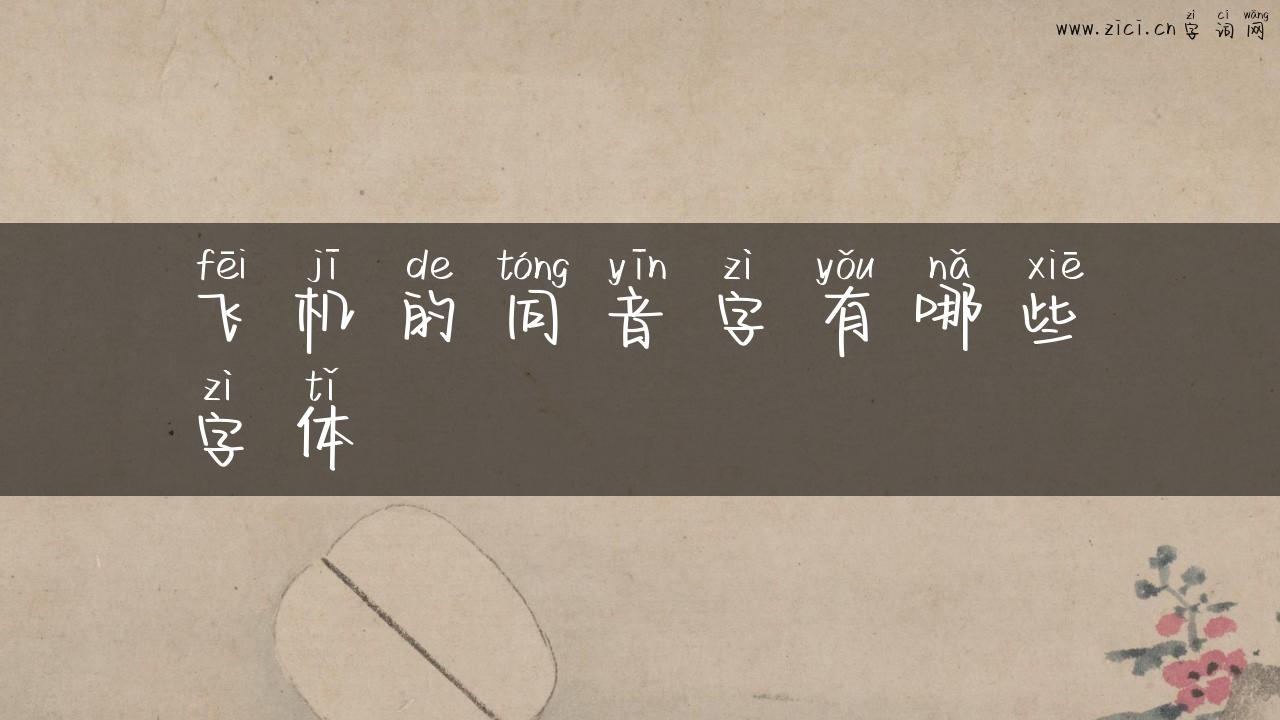 zì cí wǎng
www.zici.cn 字词网
fēi jī de tóng yīn zì yǒu nǎ xiē
飞机的同音字有哪些
zì tǐ
字体